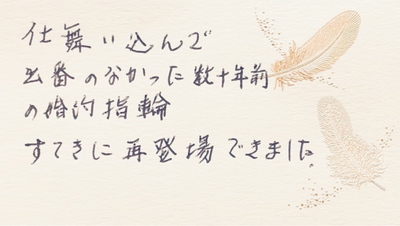 仕舞い込んで
出番のなかった数十年前
の婚約指輪
すてきに再登場できました。